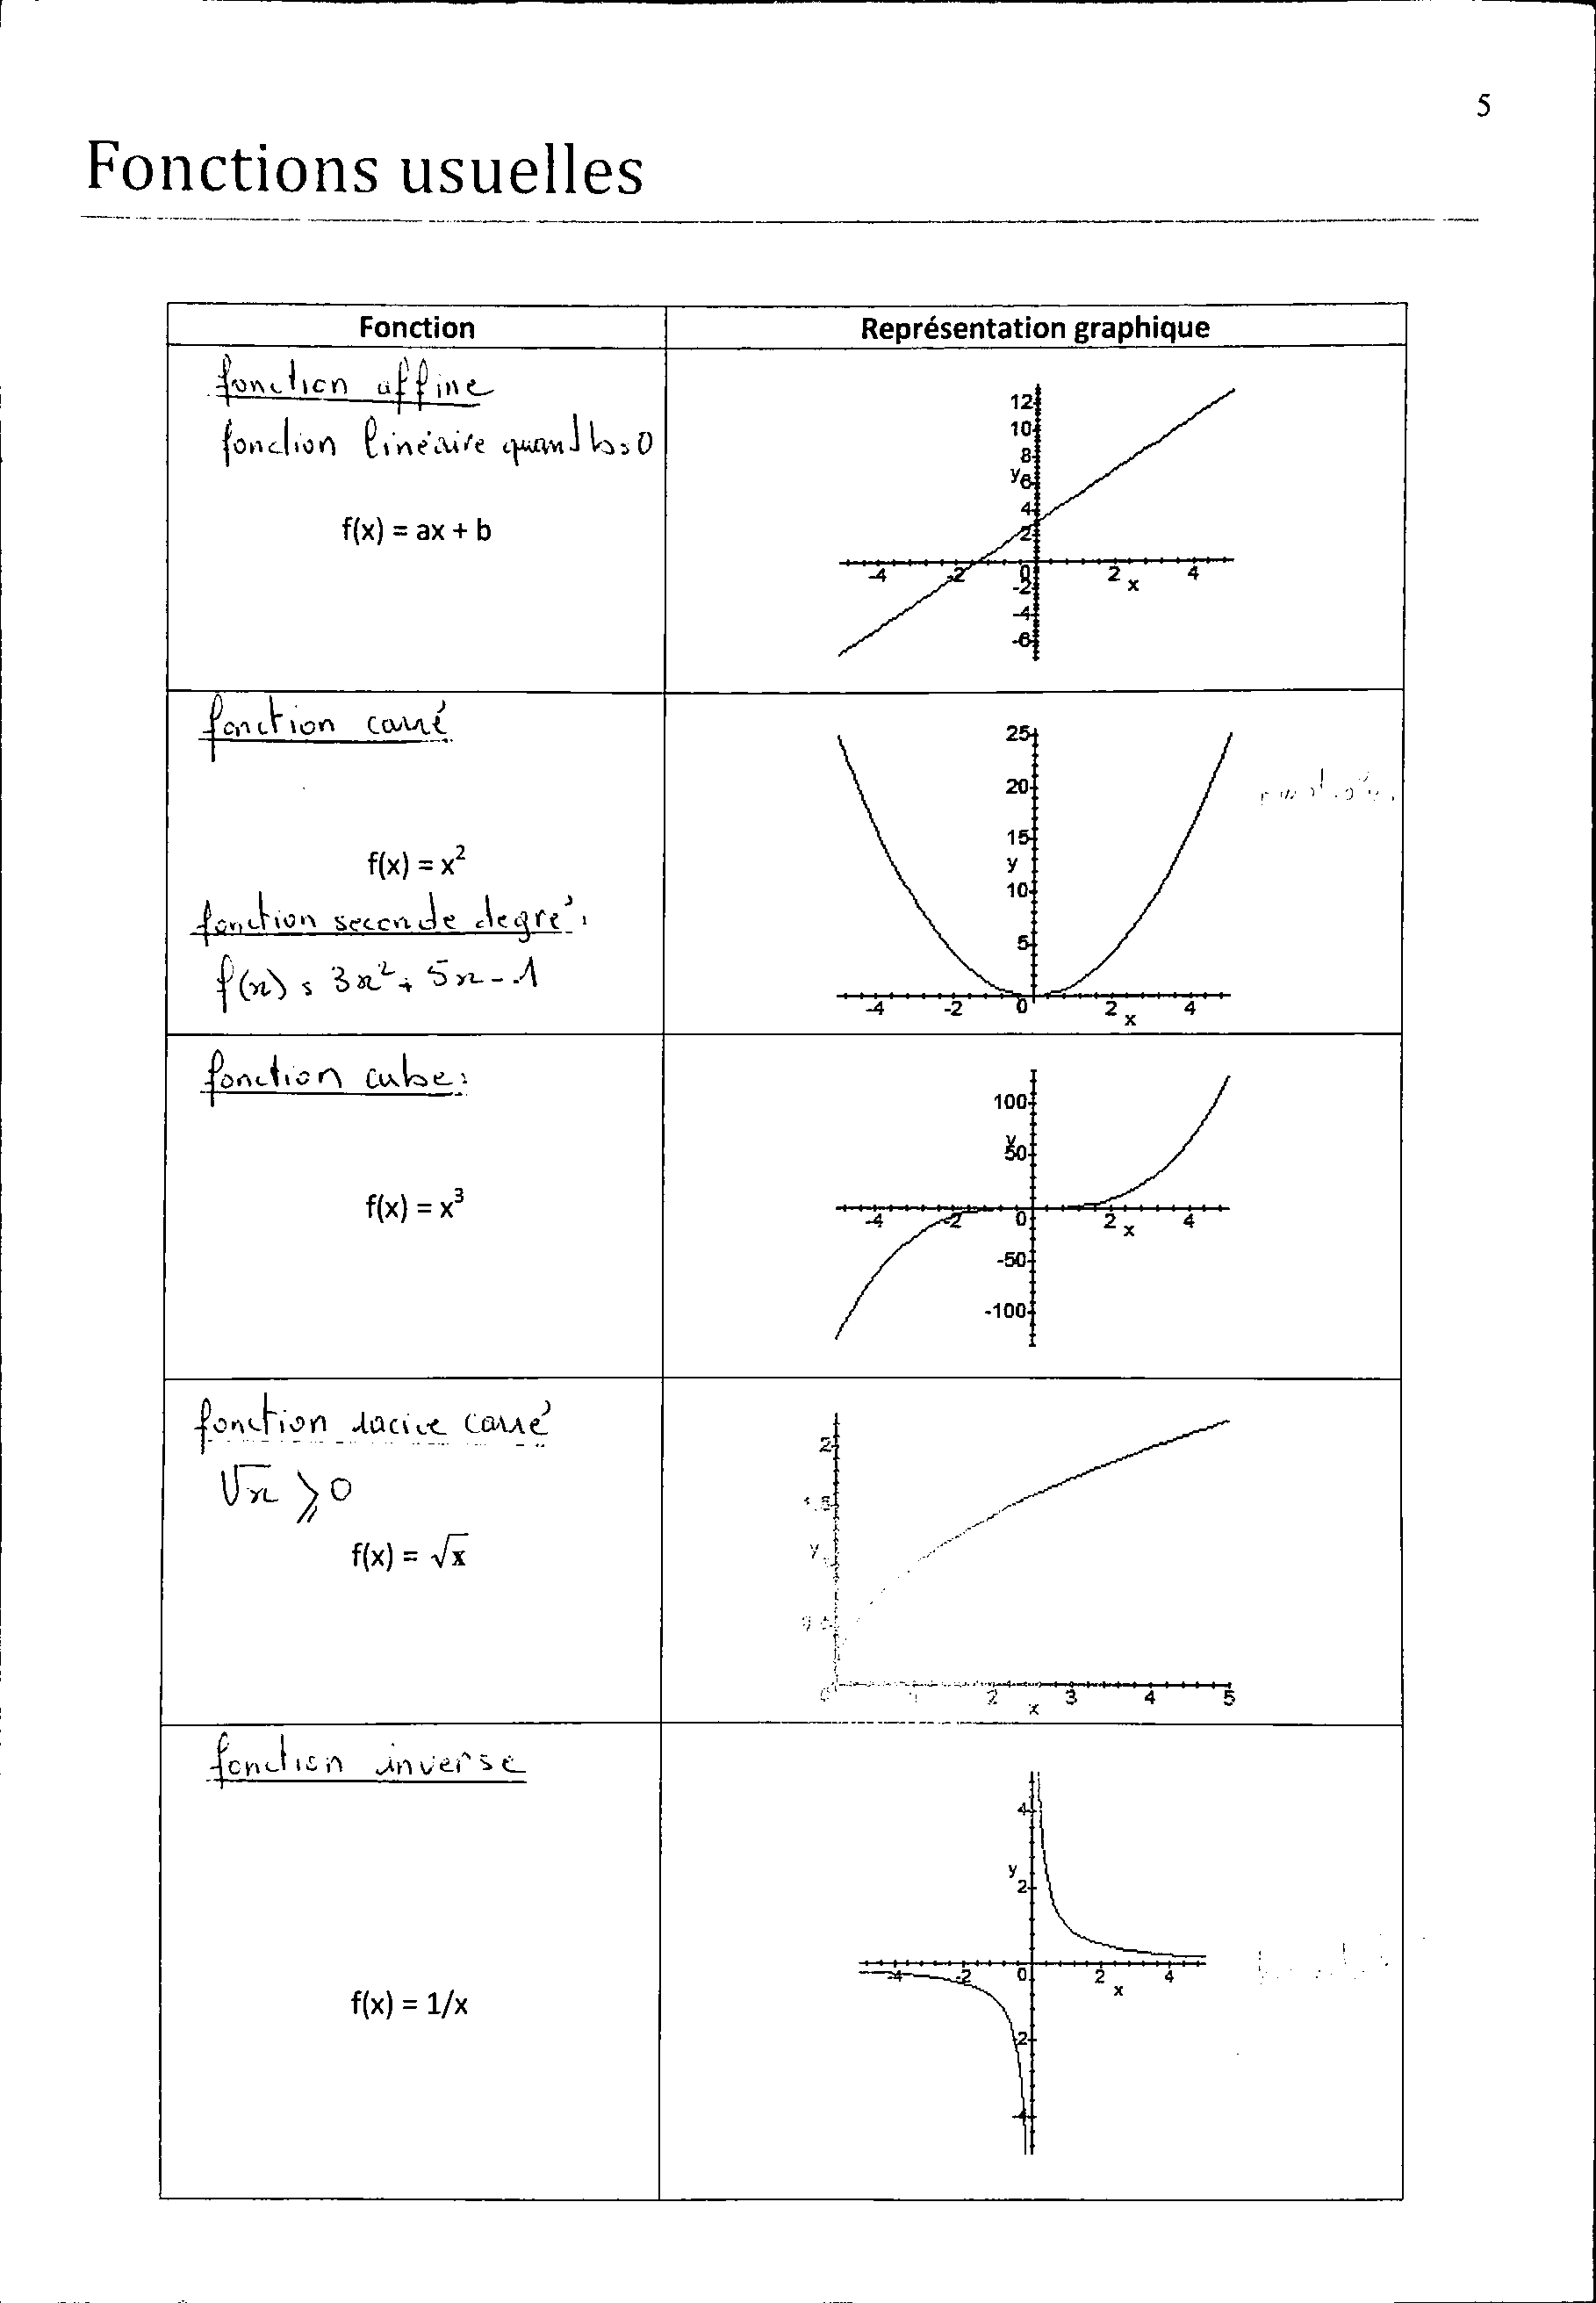 5
Fonctions usuelles
Fonction
Représentation graphique
fonction affine
fonction linéaire quand b=0
f(x) = ax + b
12
10
8
y
6
4
2
-4 -2 0 2 4
x
-2
-4
-6
fonction carré
f(x) = x²
fonction seconde degré:
f(x) = 3x² + 5x - 1
25
20
15
y
10
5
-4 -2 0 2 4
x
fonction cube:
f(x) = x³
100
y
50
-4 -2 0 2 4
x
-50
-100
fonction racine carré
√x ⩾ 0
f(x) = √x
2
y
2 3 4 5
x
fonction inverse
f(x) = 1/x
4
y
2
-4 -2 0 2 4
x
-2
-4